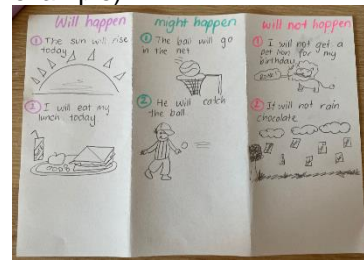 example)
Will happen
① The sun will rise
today
② I will eat my
lunch today
might happen
① The ball will go
in the net
② He will catch
the ball
will not happen
① I will not get a
pet lion for my
birthday
② It will not rain
chocolate